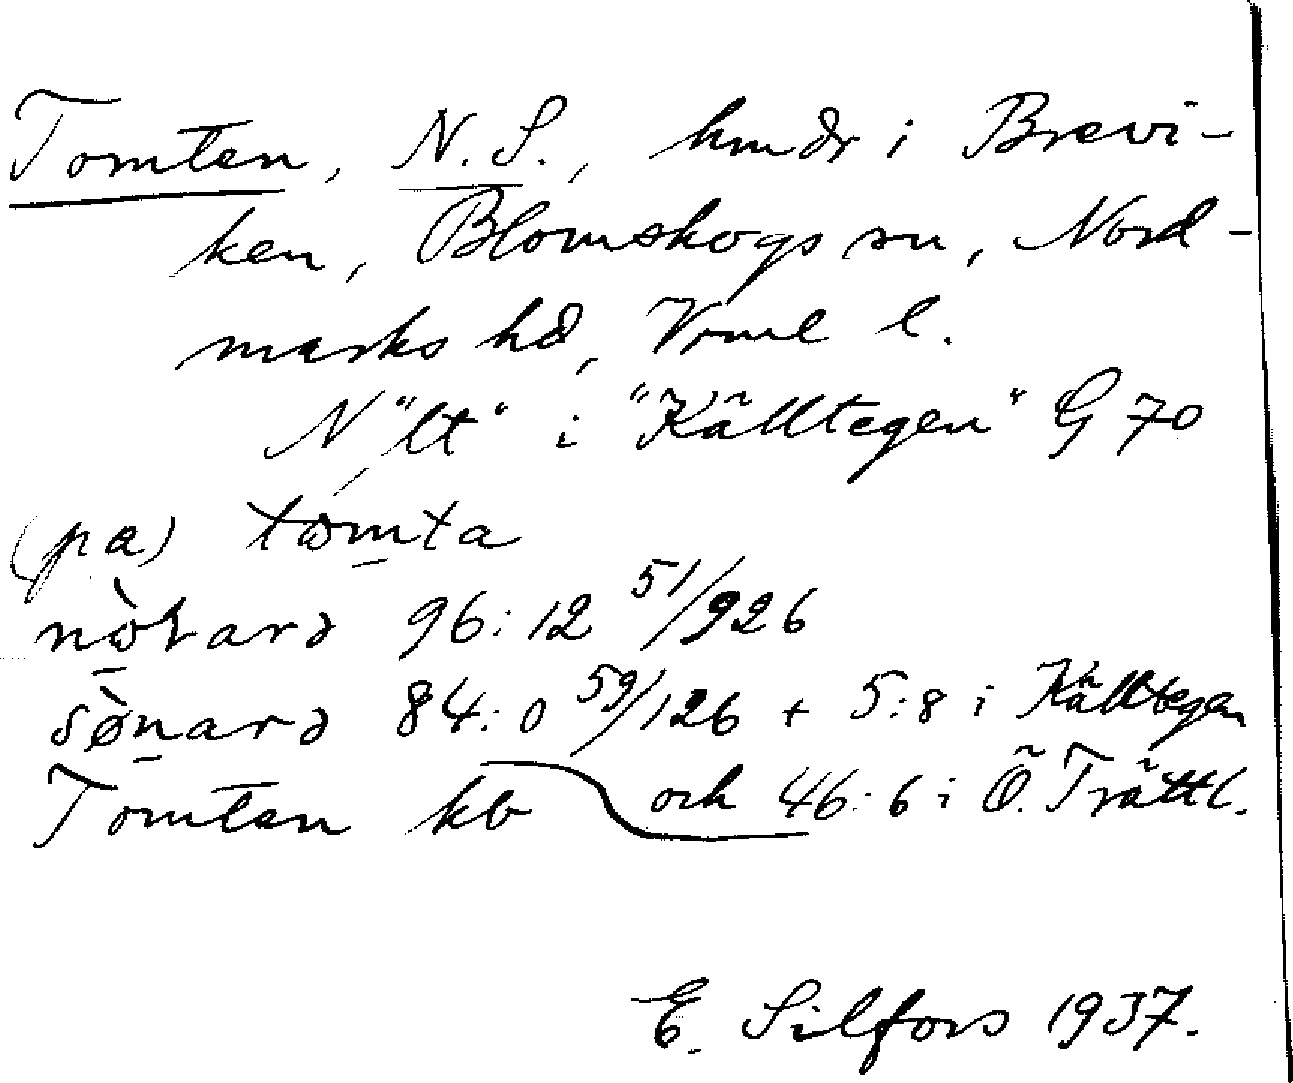 Tomten, N. S., hmdr i Brevi-
ken, Blomskogs sn, Nord-
marks hd, Vrml l.
N "lt" i "Källtegen" G 70
(pa) tomta
nò̱ɫarə 96:12 51/926
sø̱̀narə 84:0 59/126 + 5:8 i Källtegen
Tomten kb och 46:6 i Ö. Trättl.
E. Silfors 1937.